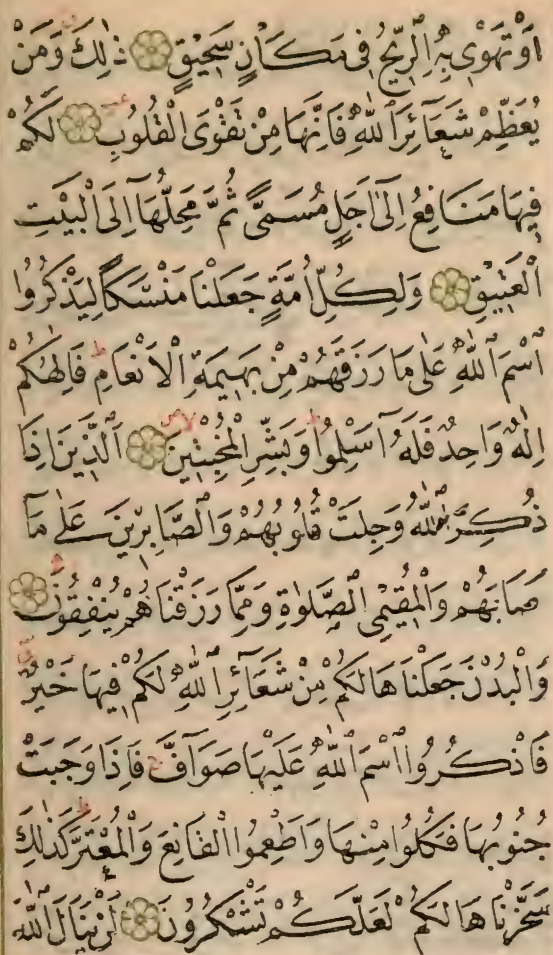 اَوْ تَهْوٖى بِهِ الرّٖيحُ فٖى مَكَانٍ سَحٖيقٍ ۞ ذٰلِكَ وَمَنْ
يُعَظِّمْ شَعَٓائِرَ اللّٰهِ فَاِنَّهَا مِنْ تَقْوَى الْقُلُوبِ ۞ لَكُمْ
فٖيهَا مَنَافِعُ اِلٰٓى اَجَلٍ مُسَمًّى ثُمَّ مَحِلُّهَٓا اِلَى الْبَيْتِ
الْعَتٖيقِ ۞ وَلِكُلِّ اُمَّةٍ جَعَلْنَا مَنْسَكًا لِيَذْكُرُوا
اسْمَ اللّٰهِ عَلٰى مَا رَزَقَهُمْ مِنْ بَهٖيمَةِ الْاَنْعَامِ ط فَاِلٰهُكُمْ
اِلٰهٌ وَاحِدٌ فَلَهُٓ اَسْلِمُوا ط وَبَشِّرِ الْمُخْبِتٖينَ ۞ اَلَّذٖينَ اِذَا
ذُكِرَ اللّٰهُ وَجِلَتْ قُلُوبُهُمْ وَالصَّابِرٖينَ عَلٰى مَٓا
صَابَهُمْ وَالْمُقٖيمِى الصَّلٰوةِ وَمِمَّا رَزَقْنَاهُمْ يُنْفِقُونَ ۞
وَالْبُدْنَ جَعَلْنَاهَا لَكُمْ مِنْ شَعَٓائِرِ اللّٰهِ لَكُمْ فٖيهَا خَيْرٌ
فَاذْكُرُوا اسْمَ اللّٰهِ عَلَيْهَا صَوَٓافَّ ج فَاِذَا وَجَبَتْ
جُنُوبُهَا فَكُلُوا مِنْهَا وَاَطْعِمُوا الْقَانِعَ وَالْمُعْتَرَّ ط كَذٰلِكَ
سَخَّرْنَاهَا لَكُمْ لَعَلَّكُمْ تَشْكُرُونَ ۞ لَنْ يَنَالَ اللّٰهَ